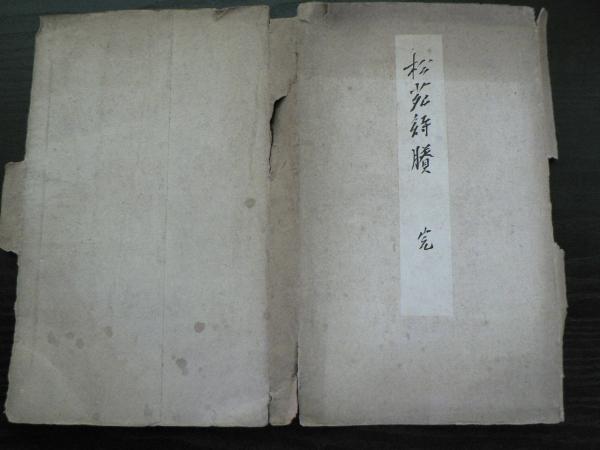 松荘詩賸 完